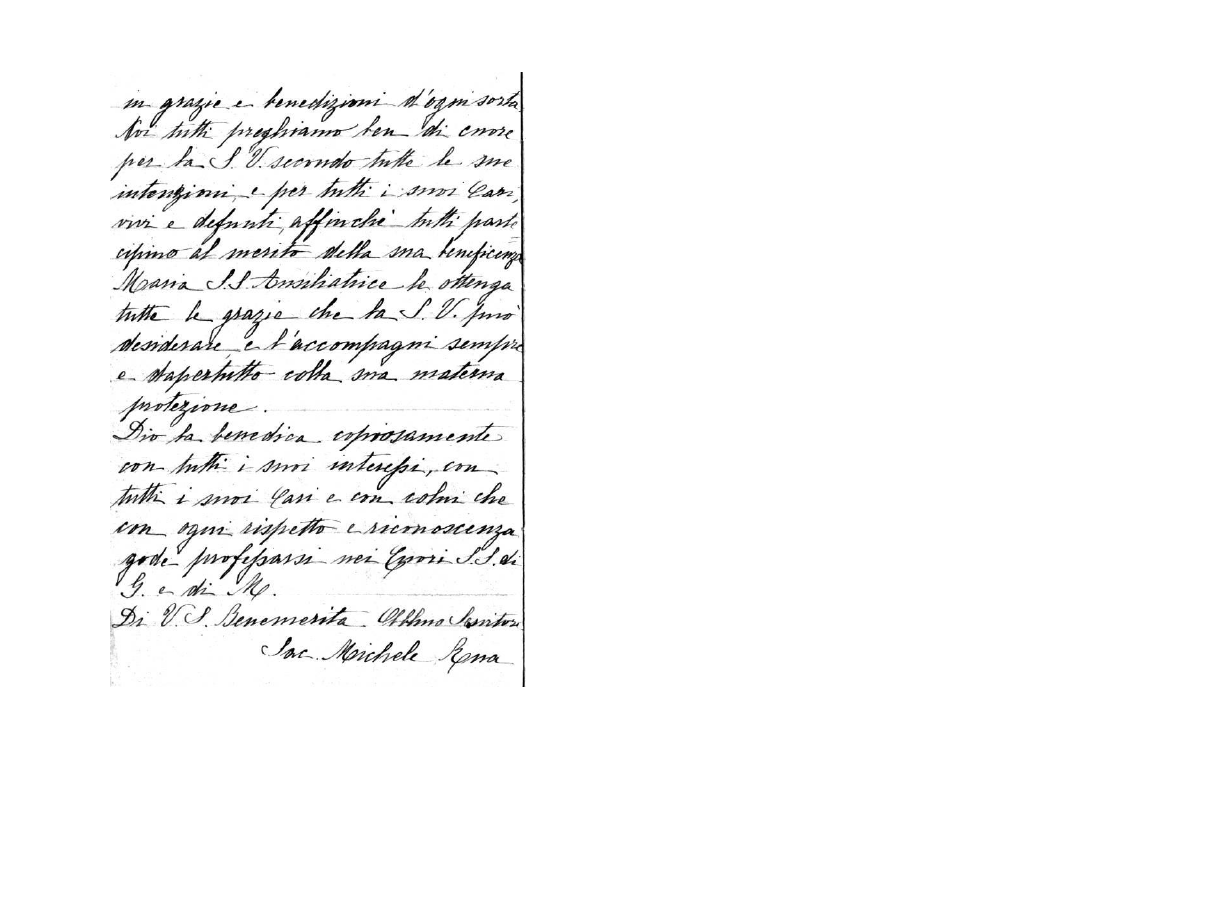 in grazie e benedizioni d'ogni sorta
Noi tutti preghiamo ben di cuore
per la S. V. secondo tutte le sue
intenzioni, e per tutti i suoi Cari,
vivi e defunti, affinchè tutti parte
cipino al merito della sua beneficenza
Maria S.S. Ausiliatrice le ottenga
tutte le grazie che la S. V. può
desiderare, e l'accompagni sempre
e dapertutto colla sua materna
protezione.
Dio la benedica copiosamente
con tutti i suoi interessi, con
tutti i suoi Cari e con colui che
con ogni rispetto e riconoscenza
gode professarsi nei Cuori S.S. di
G. e di M.
Di V. S. Benemerita Obblmo Servitore
Sac. Michele Rua